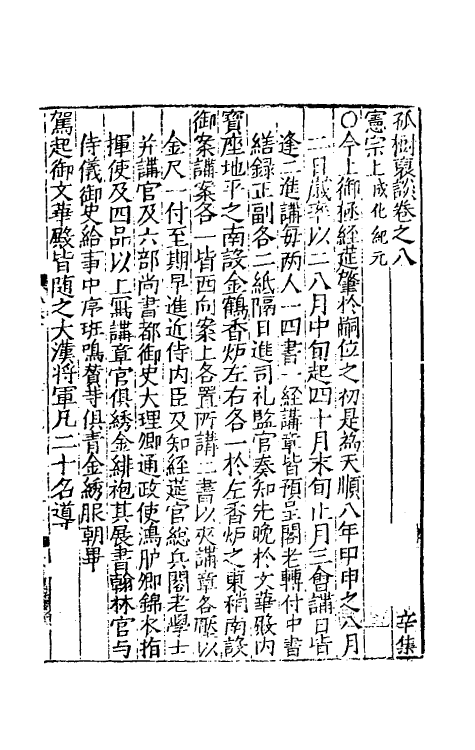 孤樹裒談卷之八
辛集
憲宗上成化紀元
○今上御極經莚肇於嗣位之初是爲天順八年甲申之八月
二日歲率以二八月中旬起四十月末旬止月三會講日皆
逢二進講每兩人一四書一經講章皆預呈閣老轉付中書
繕録正副各二紙隔日進司礼監官奏知先晚於文華殿内
寳座地平之南設金鶴香炉左右各一於左香炉之東稍南設
御案講案各一皆西向案上各置所講二書以夾講章各壓以
金尺一付至期早進近侍内臣及知經莚官緫兵閣老學士
并講官及六部尚書都御史大理卿通政使鴻胪卿錦衣指
揮使及四品以上冩講章官俱綉金緋袍其展書翰林官与
侍儀御史給事中序班鳴贊䓁俱青金綉服朝畢
駕起御文華殿皆随之大漢將軍凡二十名導